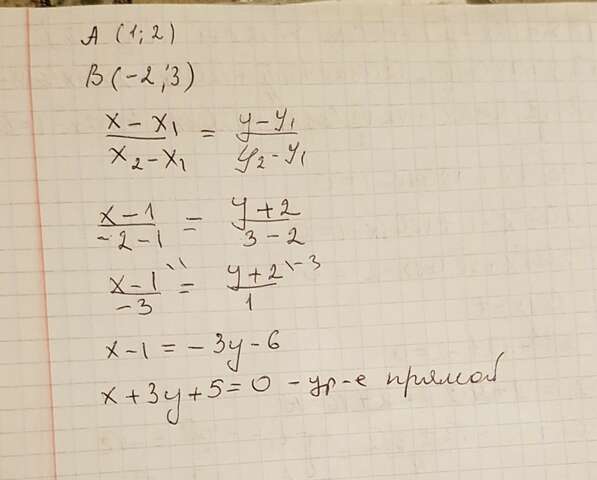 A (1; 2)
B (-2; 3)
x - x₁ / x₂ - x₁ = y - y₁ / y₂ - y₁
x - 1 / -2 - 1 = y + 2 / 3 - 2
x - 1 \¹ / -3 = y + 2 \-3 / 1
x - 1 = - 3y - 6
x + 3y + 5 = 0 - ур-е прямой